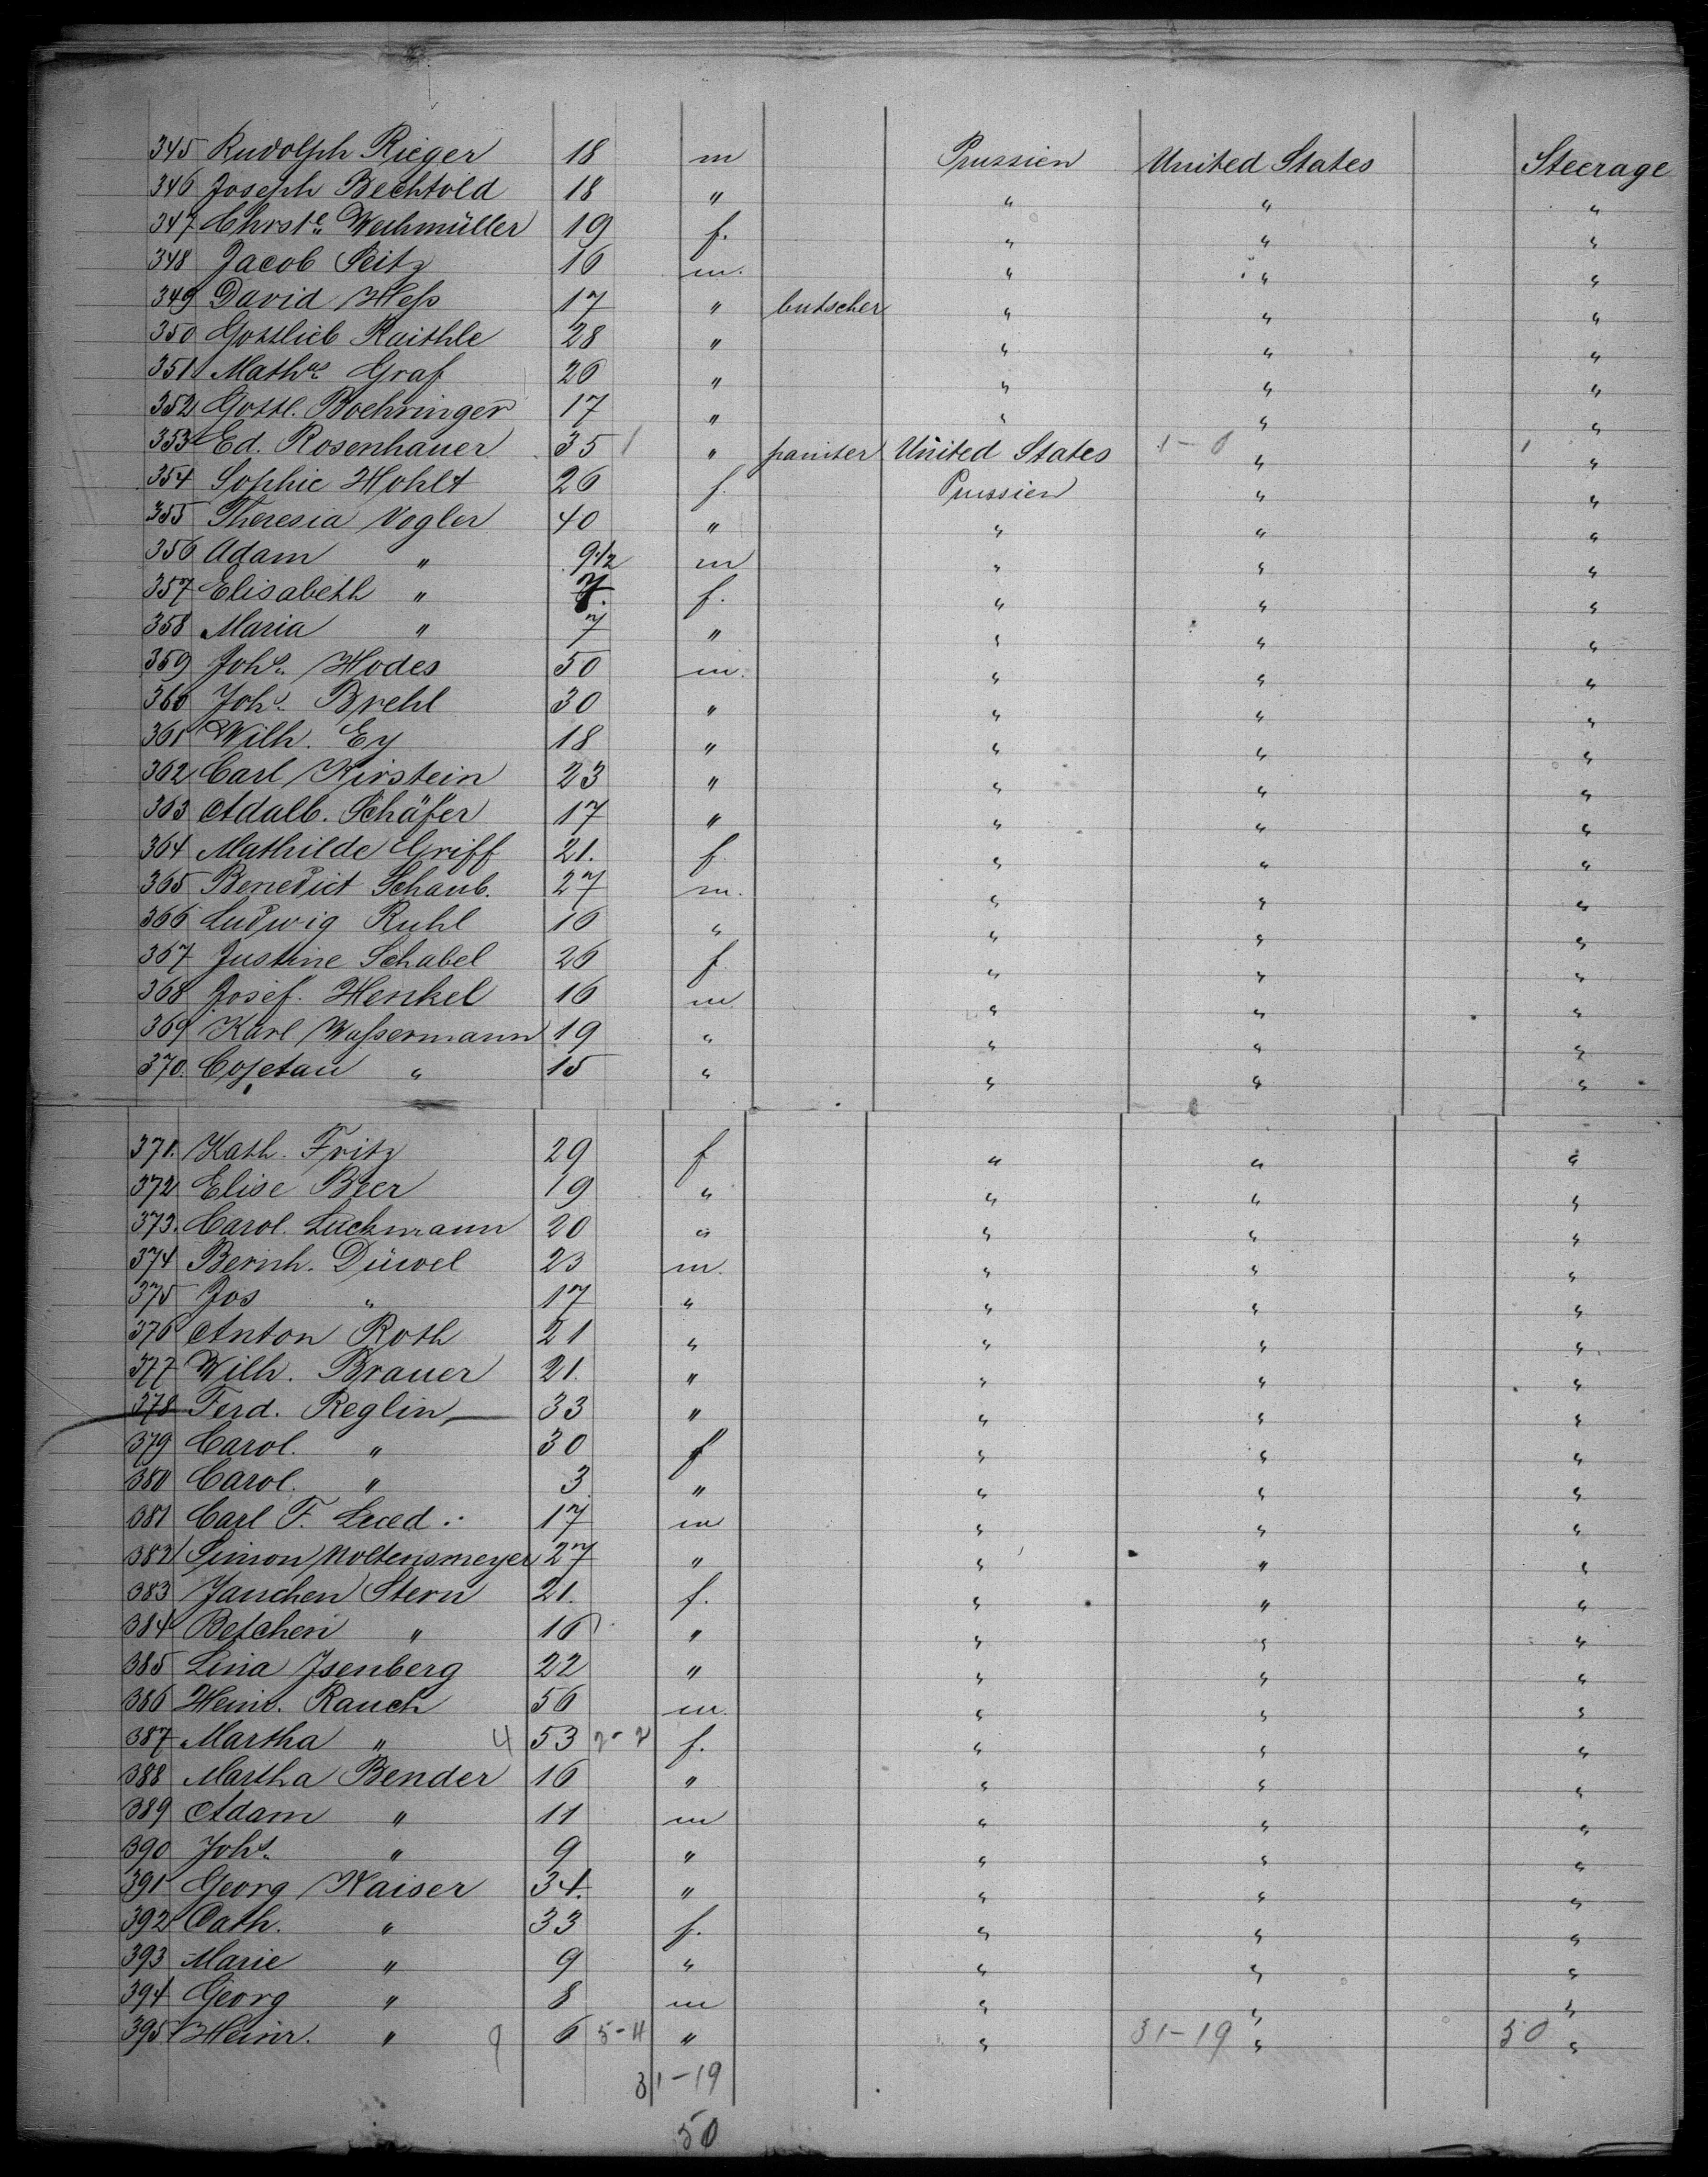 345 Rudolph Rieger 18 m Prussien United States Steerage
346 Joseph Bechtold 18 " " " "
347 Christe Wechmüller 19 f. " " "
348 Jacob Seitz 16 m. " " "
349 David Heß 17 " butscher " " "
350 Gottlieb Raithle 28 " " " "
351 Maths Graf 26 " " " "
352 Gottl. Boehringer 17 " " " "
353 Ed. Rosenhauer 35 1 " painter United States 1-0 " 1 "
354 Sophie Hohlt 26 f. Prussien " "
355 Theresia Vogler 40 " " " "
356 Adam " 9 1/2 m " " "
357 Elisabeth " f. " " "
358 Maria " 7 " " " "
359 Johs. Hodes 50 m. " " "
360 Johs. Brehl 30 " " " "
361 Wilh. Ey 18 " " " "
362 Carl Kirstein 23 " " " "
363 Adalb. Schäfer 17 " " " "
364 Mathilde Griff 21. f. " " "
365 Benedict Schaub. 27 m. " " "
366 Ludwig Ruhl 16 " " " "
367 Justine Schabel 26 f " " "
368 Josef. Henkel 16 m " " "
369 Karl Waßermann 19 " " " "
370. Cojetan " 15 " " " "
371. Kath. Fritz 29 f " " "
372 Elise Beer 19 " " " "
373. Carol. Luckmann 20 " " " "
374 Bernh. Düwel 23 m. " " "
375 Jos " 17 " " " "
376 Anton Roth 21 " " " "
377 Wilh. Brauer 21. " " " "
378 Ferd. Reglin 33 " " " "
379 Carol. " 30 f " " "
380 Carol. " 3 " " " "
381 Carl F. 17 m " " "
382 Simon Noltensmeyer 27 " " " "
383 Janchen Stern 21. f. " " "
384 Betchen " 16 " " " "
385 Lina Isenberg 22 " " " "
386 Heinr. Rauch 56 m. " " "
387 Martha " 4 53 2-2 f. " " "
388 Martha Bender 16 " " " "
389 Adam " 11 m " " "
390 Johs. " 9 " " " "
391 Georg Kaiser 34. " " " "
392 Cath. " 33 f. " " "
393 Marie " 9 " " " "
394 Georg " 8 m " " "
395 Heinr. " 9 6 5-4 " " 31-19 " 50 "
31-19
50